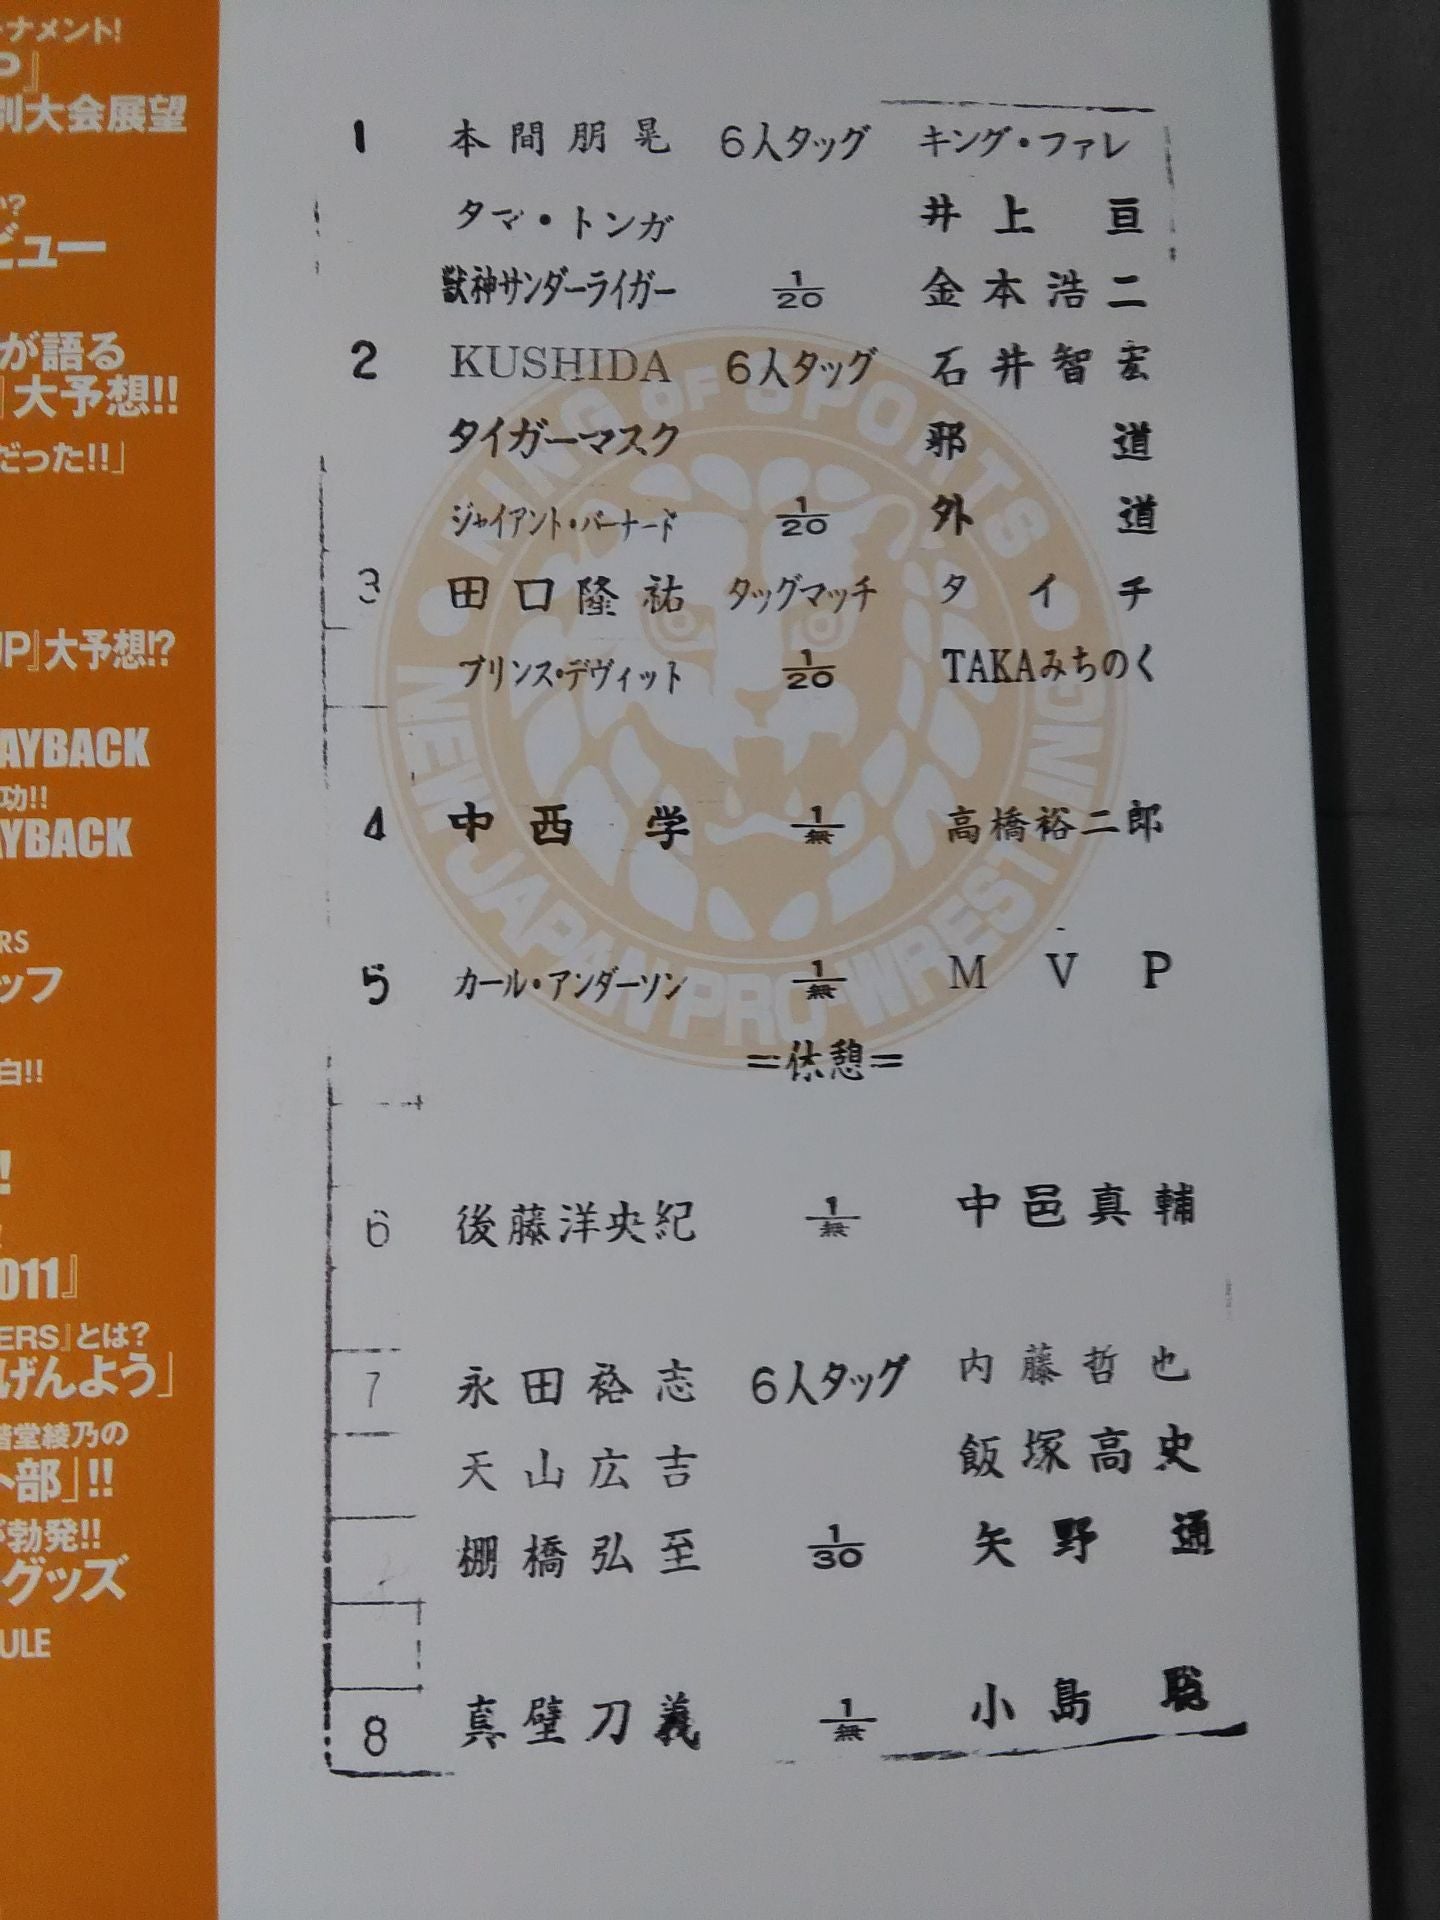 ーナメント!
P』
別大会展望
か?
ビュー
が語る
』大予想!!
だった!!」
UP』大予想!?
AYBACK
功!!
AYBACK
ERS
ッフ
白!!
!
011』
ERS』とは?
げんよう」
階堂綾乃の
ト部」!!
が勃発!!
グッズ
ULE
1 本間朋晃 6人タッグ キング・ファレ
タマ・トンガ 井上亘
獣神サンダーライガー 1/20 金本浩二
2 KUSHIDA 6人タッグ 石井智宏
タイガーマスク 邪道
ジャイアント・バーナード 1/20 外道
3 田口隆祐 タッグマッチ タイチ
プリンス・デヴィット 1/20 TAKAみちのく
4 中西学 1/無 高橋裕二郎
5 カール・アンダーソン 1/無 MVP
=休憩=
6 後藤洋央紀 1/無 中邑真輔
7 永田裕志 6人タッグ 内藤哲也
天山広吉 飯塚高史
棚橋弘至 1/30 矢野通
8 真壁刀義 1/無 小島聡
KING OF SPORTS
NEW JAPAN PRO-WRESTLING